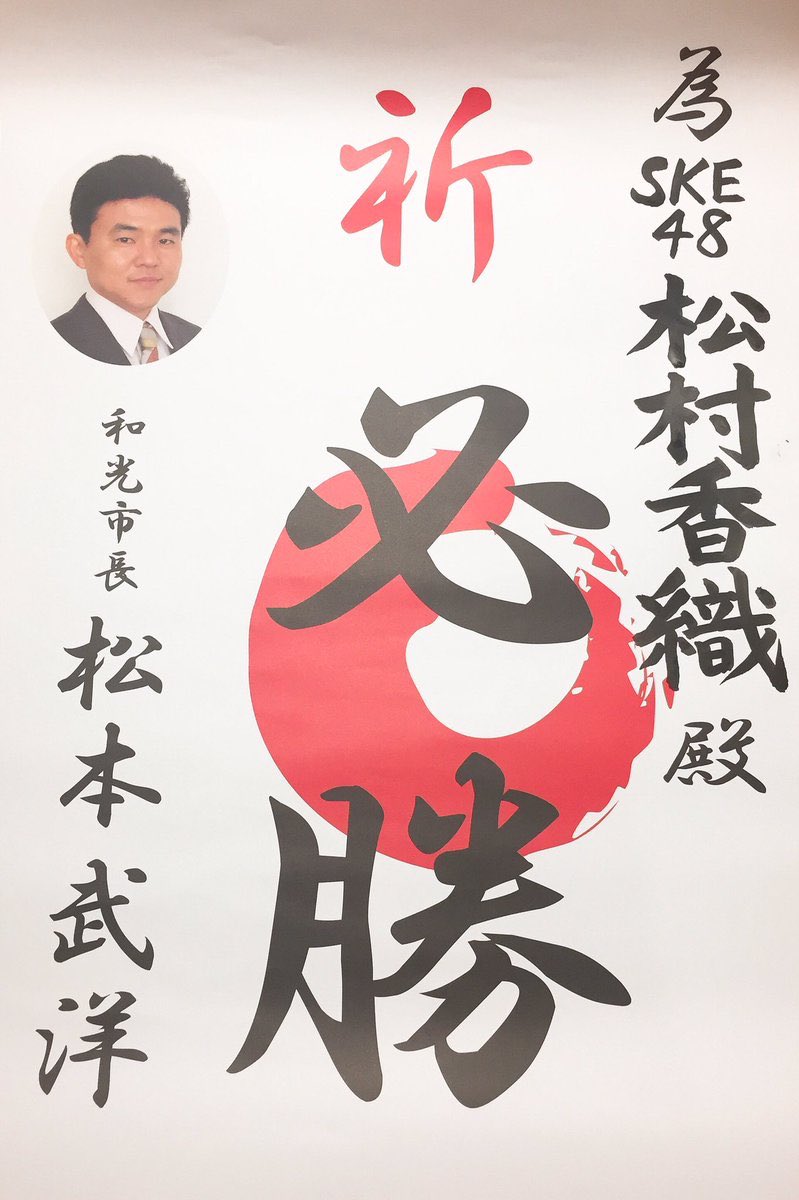 為SKE48松村香織殿
祈
必勝
和光市長 松本武洋